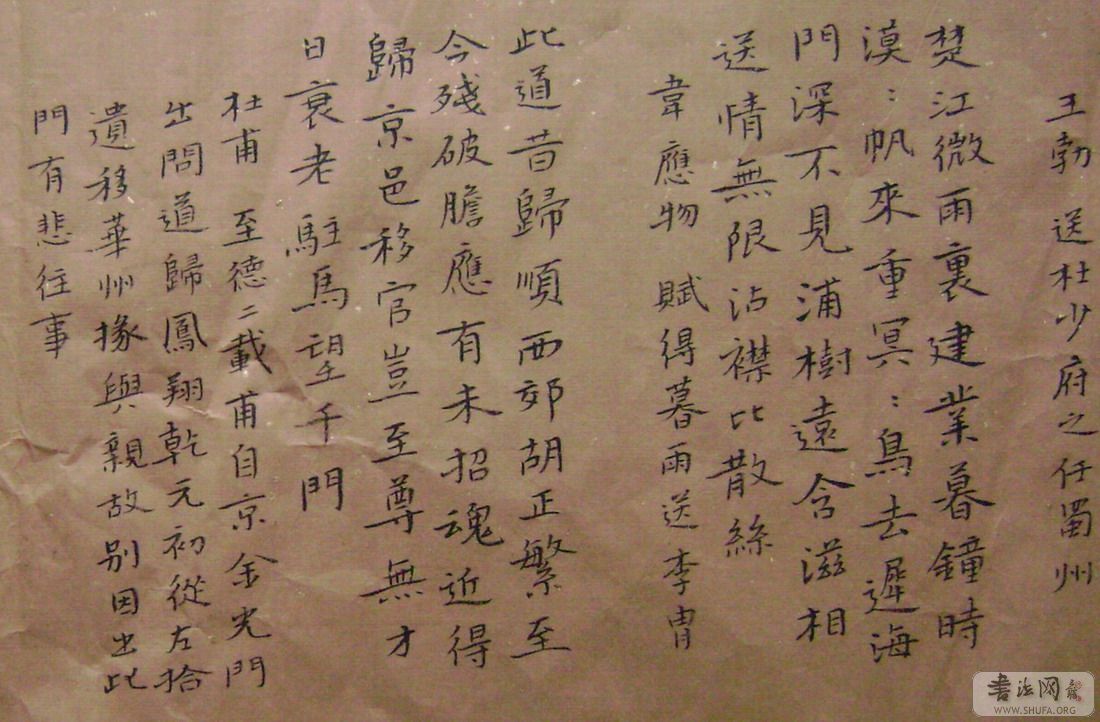 王勃 送杜少府之任蜀州
楚江微雨裏建業暮鐘時
漠：帆來重冥：鳥去遲海
門深不見浦樹遠含滋相
送情無限沾襟比散絲
韋應物 賦得暮雨送李冑
此道昔歸順西郊胡正繁至
今殘破膽應有未招魂近得
歸京邑移官豈至尊無才
日衰老駐馬望千門
杜甫 至德二載甫自京金光門
出問道歸鳳翔乾元初從左拾
遺移華州掾與親故別因出此
門有悲往事
書法网
WWW.SHUFA.ORG